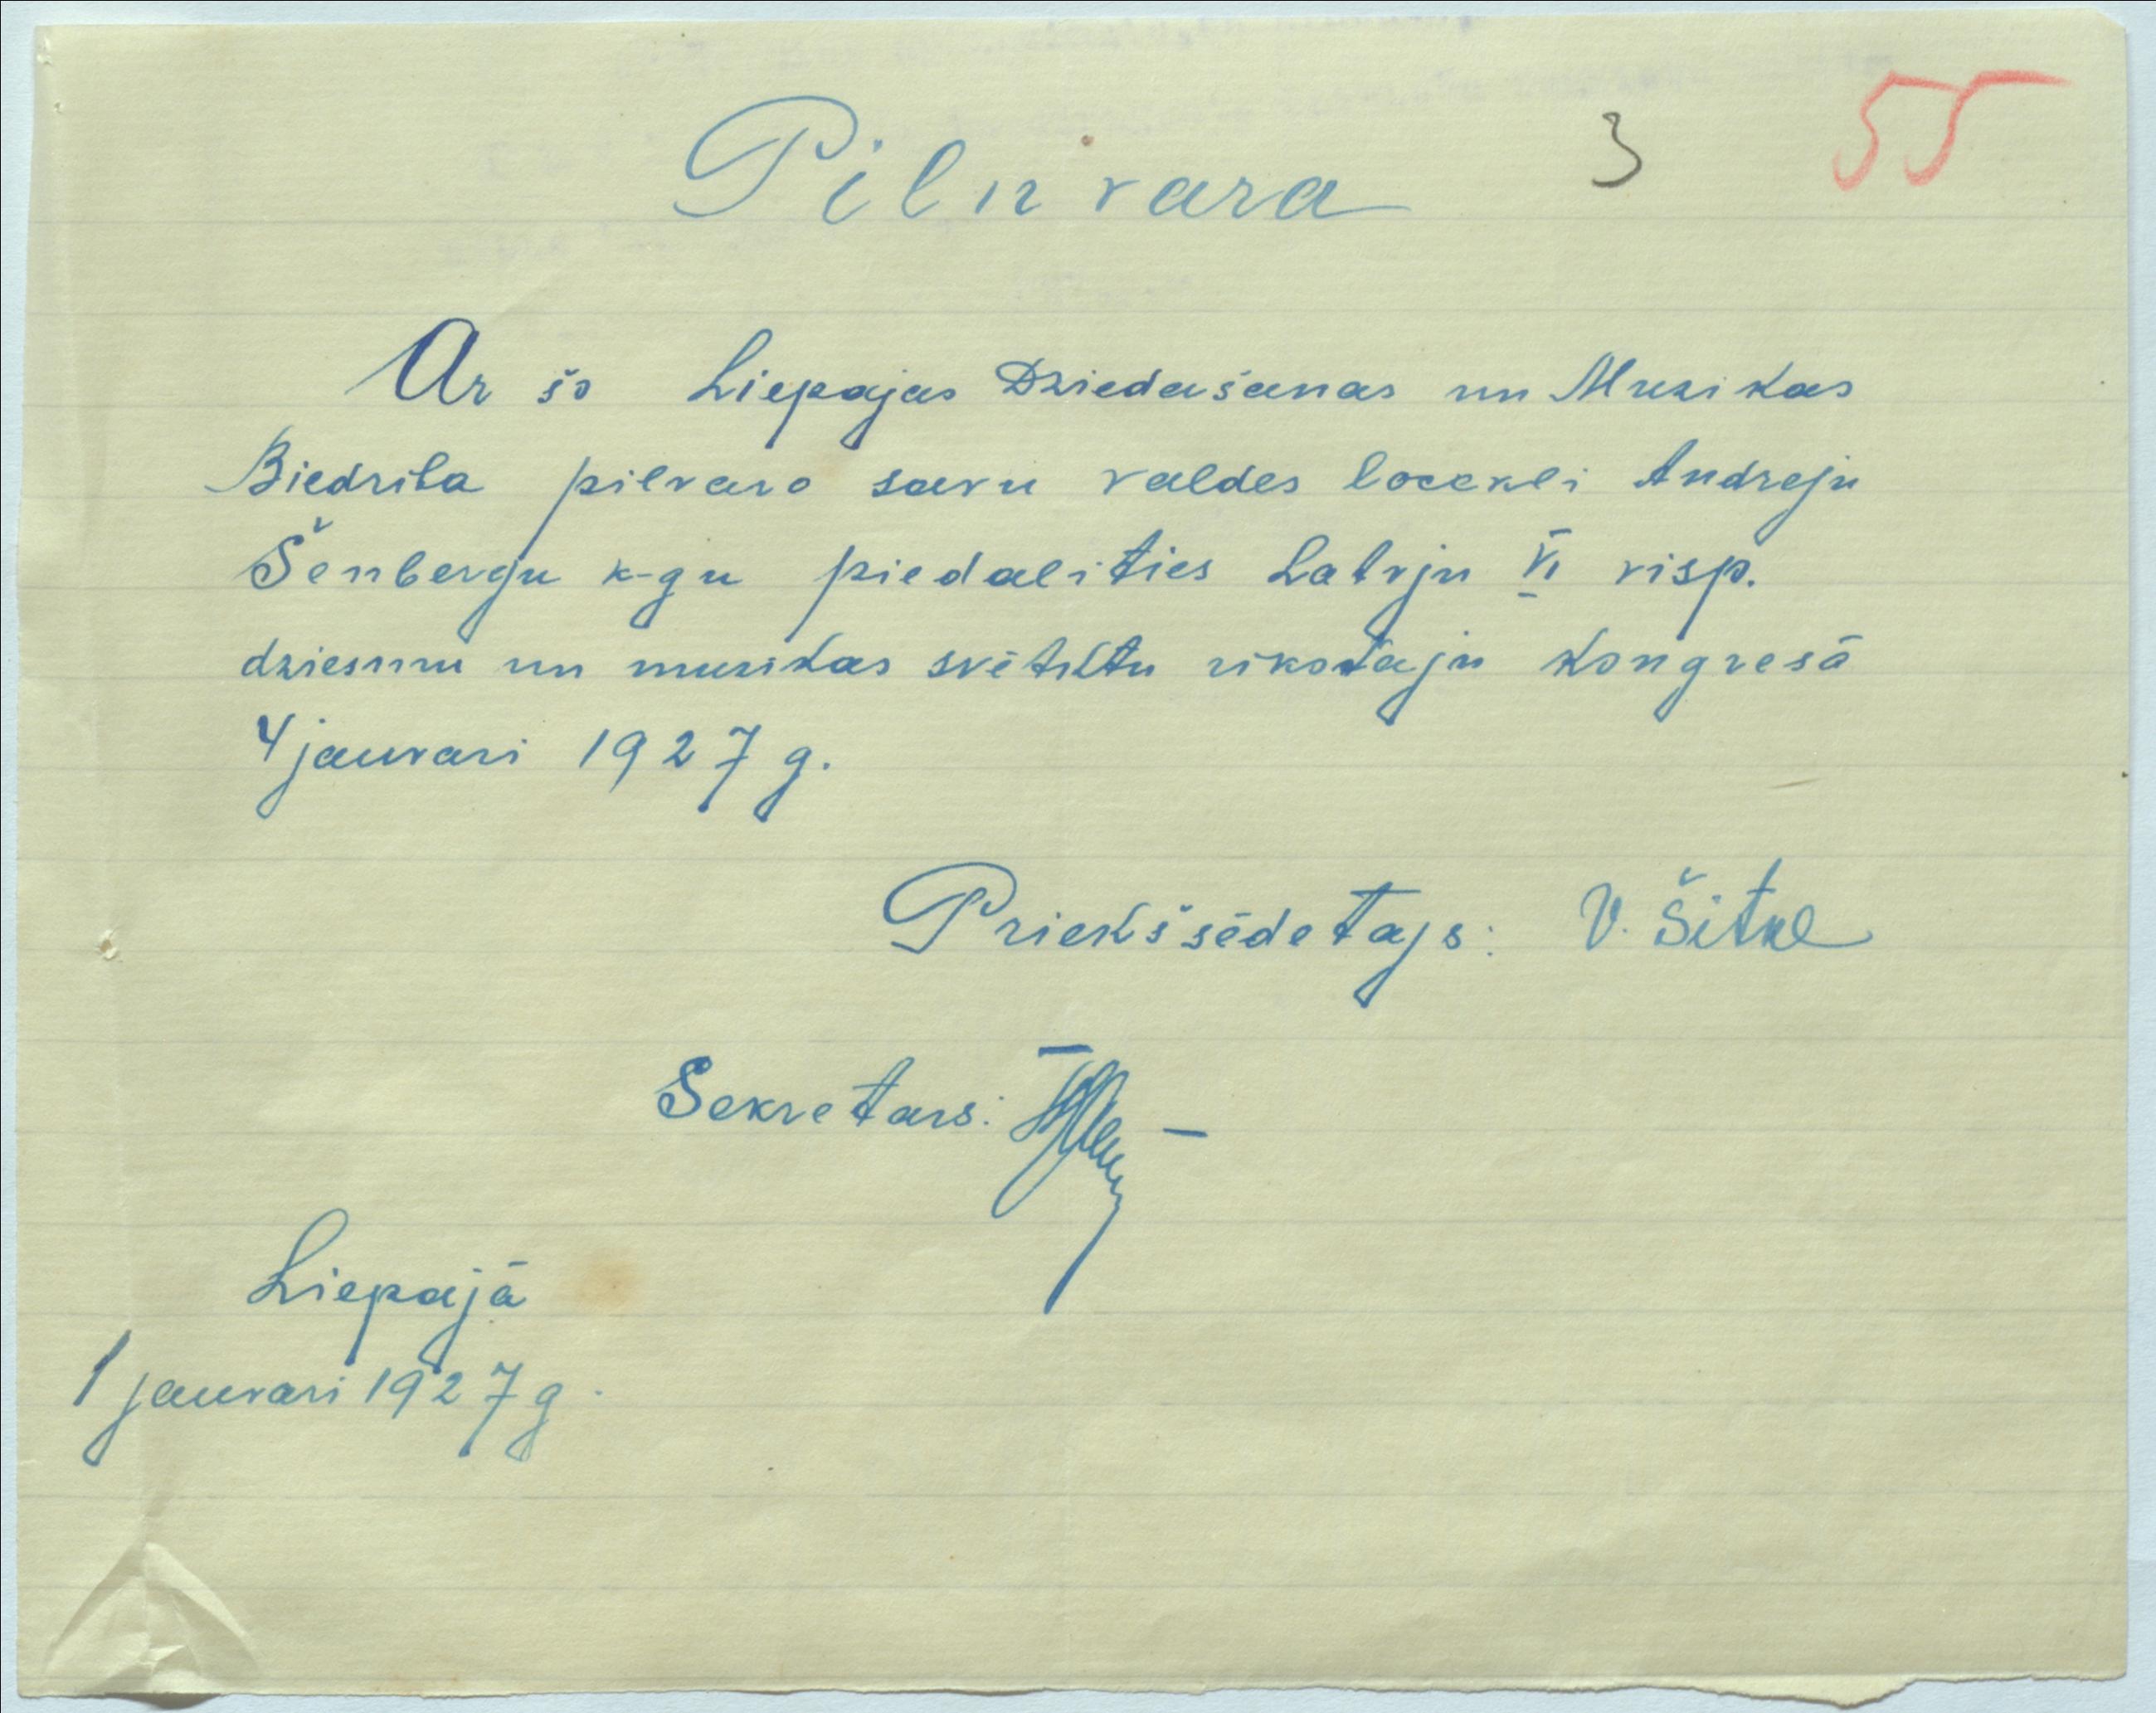 3 55
Pilnvara
Ar šo Liepajas Dziedašanas un Muzikas
Biedriba pilvaro savu valdes locekli Andreju
Šenbergu k-gu piedalities Latvju VI visp.
dziesmu un muzikas svētktu rikotaju kongresā
4 januari 1927 g.
Priekšsēdetajs: V. Šitke
Sekretars:
Liepajā
1 januari 1927 g.